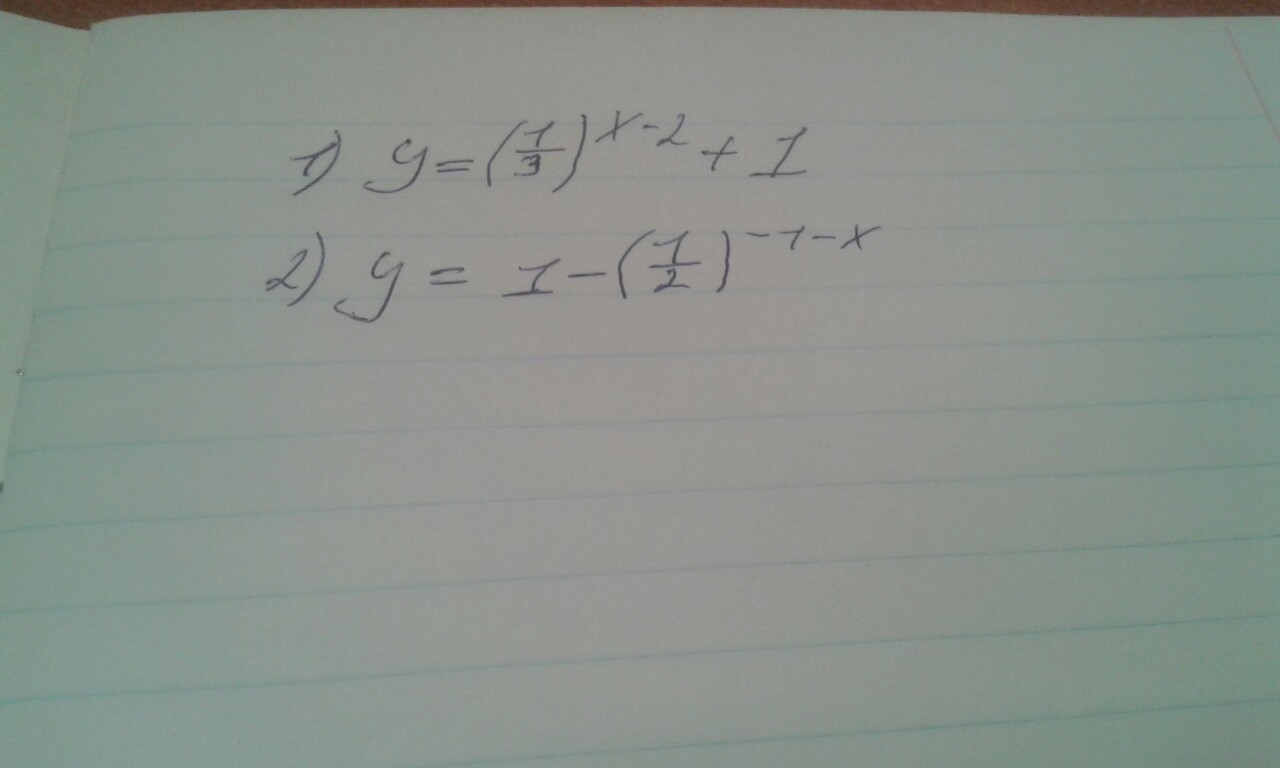 1) y = (1/3)^{x-2} + 1
2) y = 1 - (1/2)^{-1-x}